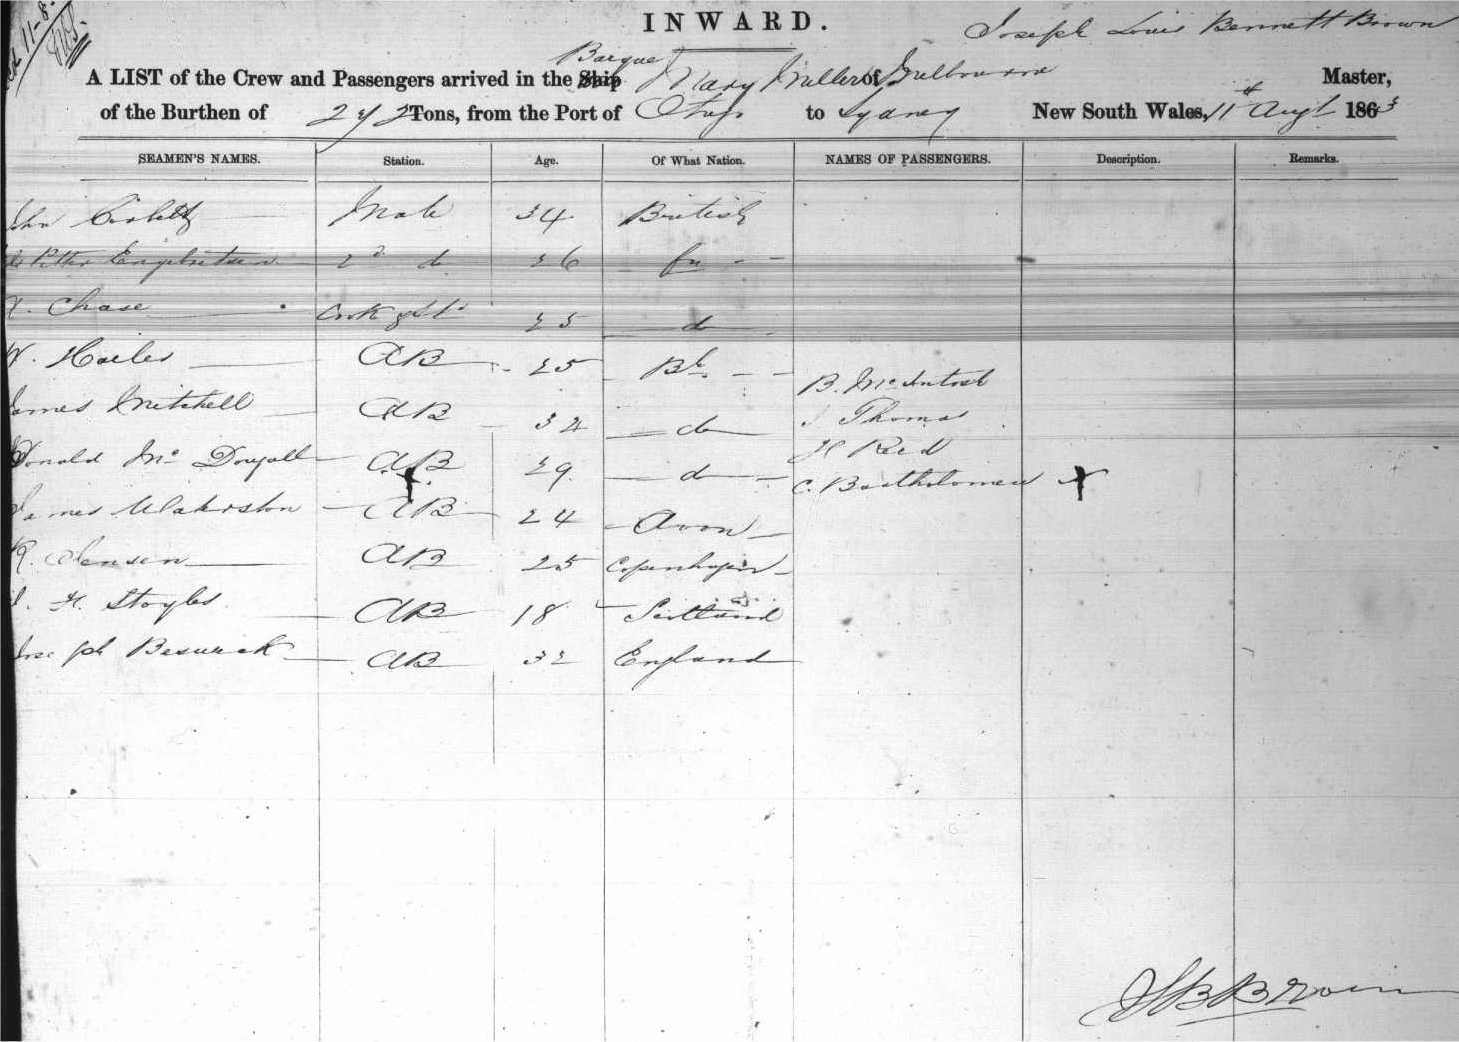 INWARD.
Joseph Louis Bennett Brown
A LIST of the Crew and Passengers arrived in the Ship Barque Mary Miller of Melbourne Master,
of the Burthen of Tons, from the Port of Otago to Sydney New South Wales, 11th Augt 1863
SEAMEN'S NAMES. Station. Age. Of What Nation. NAMES OF PASSENGERS. Description. Remarks.
John Corbett Mate 34 British
2d do 26
Chase Cook & Std 25 do
W. Hailes AB 25 Bh
B. McIntosh
James Mitchell AB 32 do
J Thomas
H Reid
Donald McDougall AB 29 do
C. Bartholomew x
James AB 24 Avon
R. Jensen AB 25 Copenhagen
J. H. Stoyles AB 18 Scotland
Joseph Beswick AB 32 England
JLB Brown